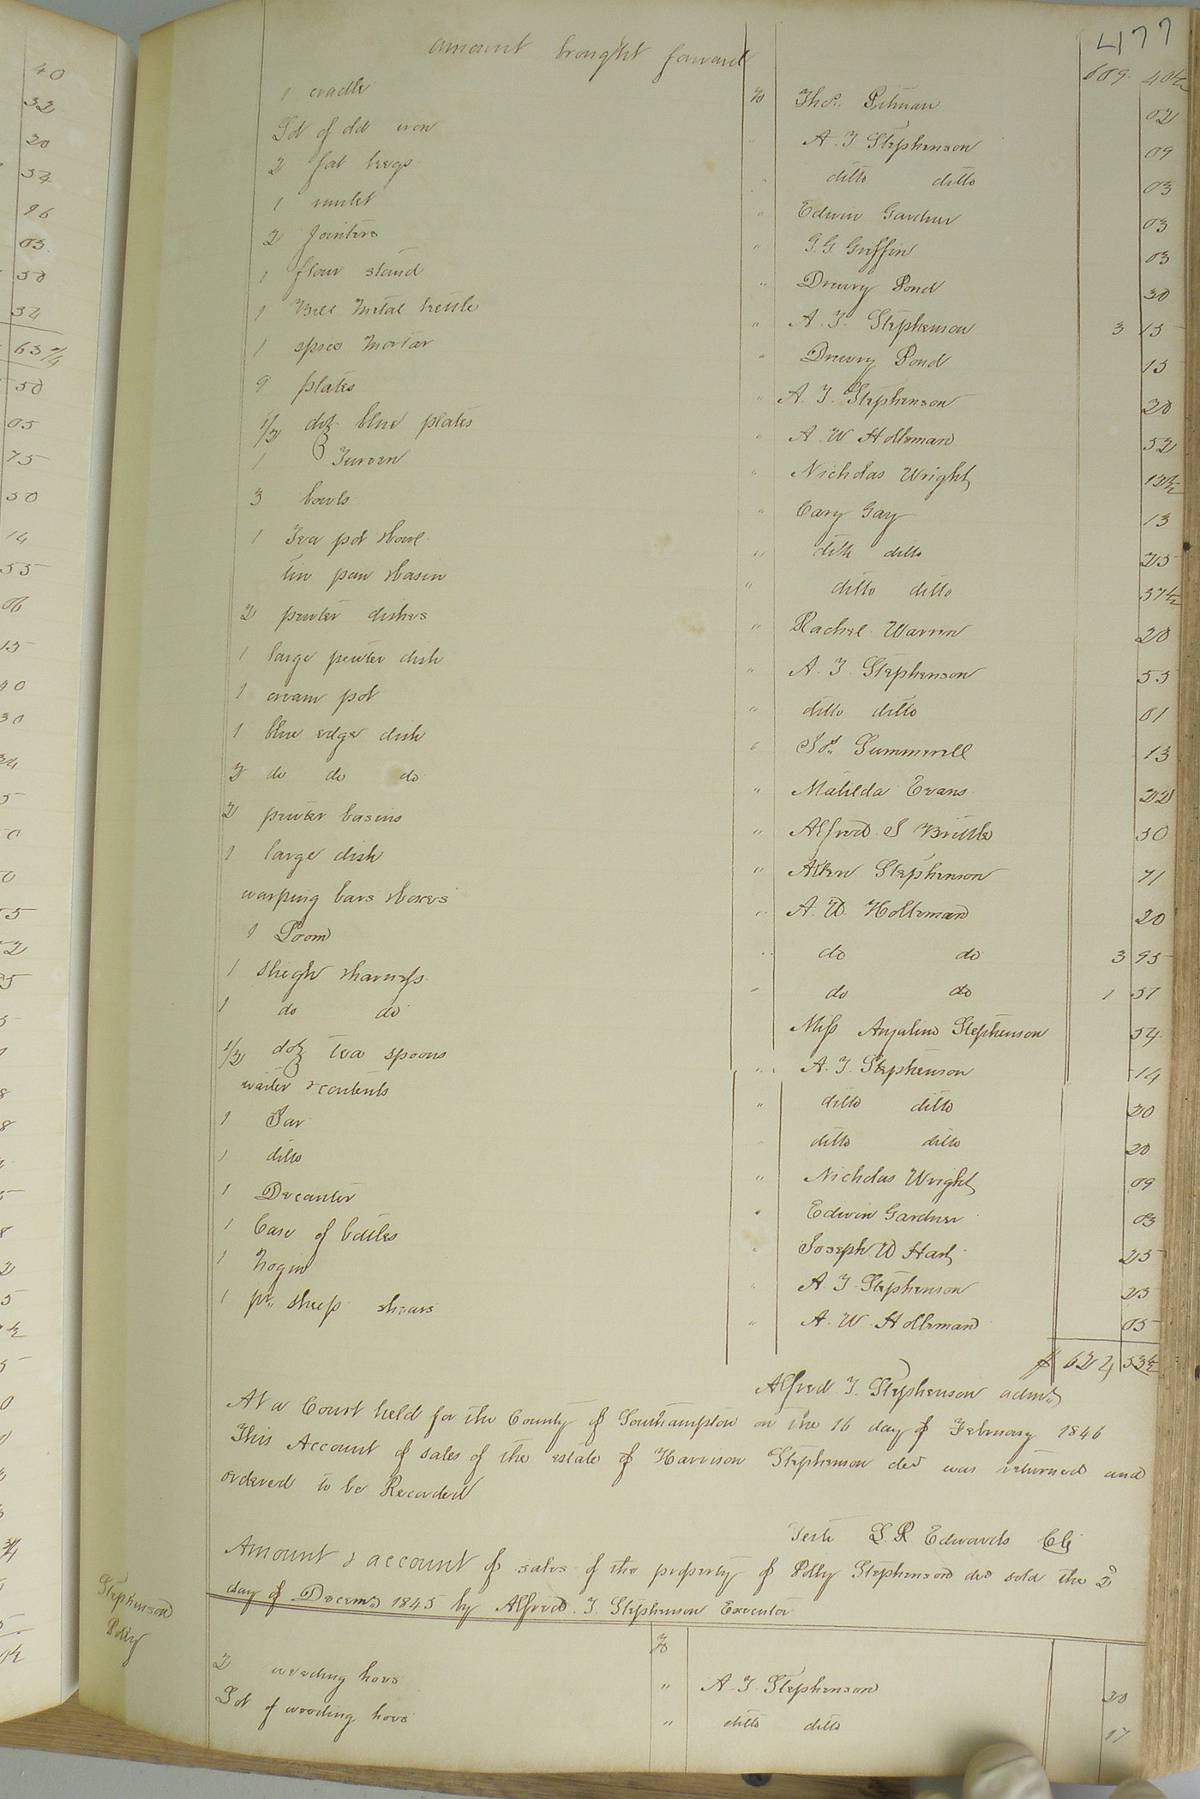 477
amount brought forward 609 40½
1 cradle to Thos. Pitman 02
Lot of old iron A. J Stephenson 09
2 fat kegs " ditto ditto 03
1 runlet " Edwin Gardner 03
2 jointers " G. G Griffin 03
1 flour stand " Drewry Pond 30
1 Bell Metal kettle " A. J. Stephenson 3 15
1 spice Mortar " Drewry Pond 15
9 plates " A. J. Stephenson 20
1/2 doz blue plates " A. W Holleman 52
1 Tureen " Nicholas Wright 13½
3 bowls " Cary Gay 13
1 Tea pot & bowl " ditto ditto 25
tin pan & basin " ditto ditto 37½
2 pewter dishes " Rachel Warren 20
1 large pewter dish " A. J. Stephenson 55
1 cream pot " ditto ditto 01
1 blue edge dish " Summerell 13
3 do do do " Matilda Evans 22
2 pewter basins " Alfred S Brittle 50
1 large dish " Stephenson 71
warping bars & boxes " A. W. Holleman 20
1 Loom " do do 3 95
1 sleigh & harness " do do 1 51
1 do do Miss Anjaline Stephenson 54
1/2 doz tea spoons " A. J. Stephenson 14
waiter & contents " ditto ditto 20
1 Jar " ditto ditto 20
1 ditto " Nicholas Wright 09
1 Decanter " Edwin Gardner 03
1 Case of bottles " Joseph W Hart 25
1 A J Stephenson 25
1 pr. sheep shears " A. W. Holleman 05
$ 624 53½
Alfred J. Stephenson admr
At a Court held for the County of Southampton on the 16 day of February 1846
This Account of sales of the estate of Harrison Stephenson decd was returned and
ordered to be Recorded
Teste L. R Edwards Clk
Amount & account of sales of the property of Polly Stephenson decd sold the 2d
day of Decemr 1845 by Alfred. J. Stephenson Executor
Stephenson
Polly
To
2 weeding hoes " A. J. Stephenson 20
Lot of weeding hoes " ditto ditto 17